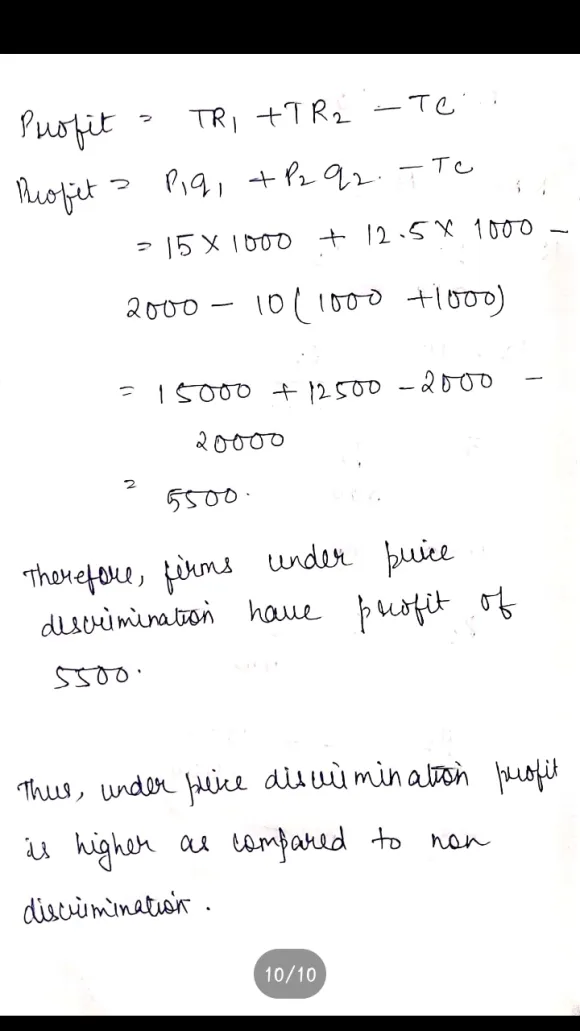 Profit = TR1 + TR2 - TC
Profit = P1q1 + P2 q2. - TC
= 15 X 1000 + 12.5 X 1000 -
2000 - 10 ( 1000 + 1000)
= 15000 + 12500 - 2000 -
20000
= 5500.
Therefore, firms under price
discrimination have profit of
5500.
Thus, under price discrimination profit
is higher as compared to non
discrimination.
10/10